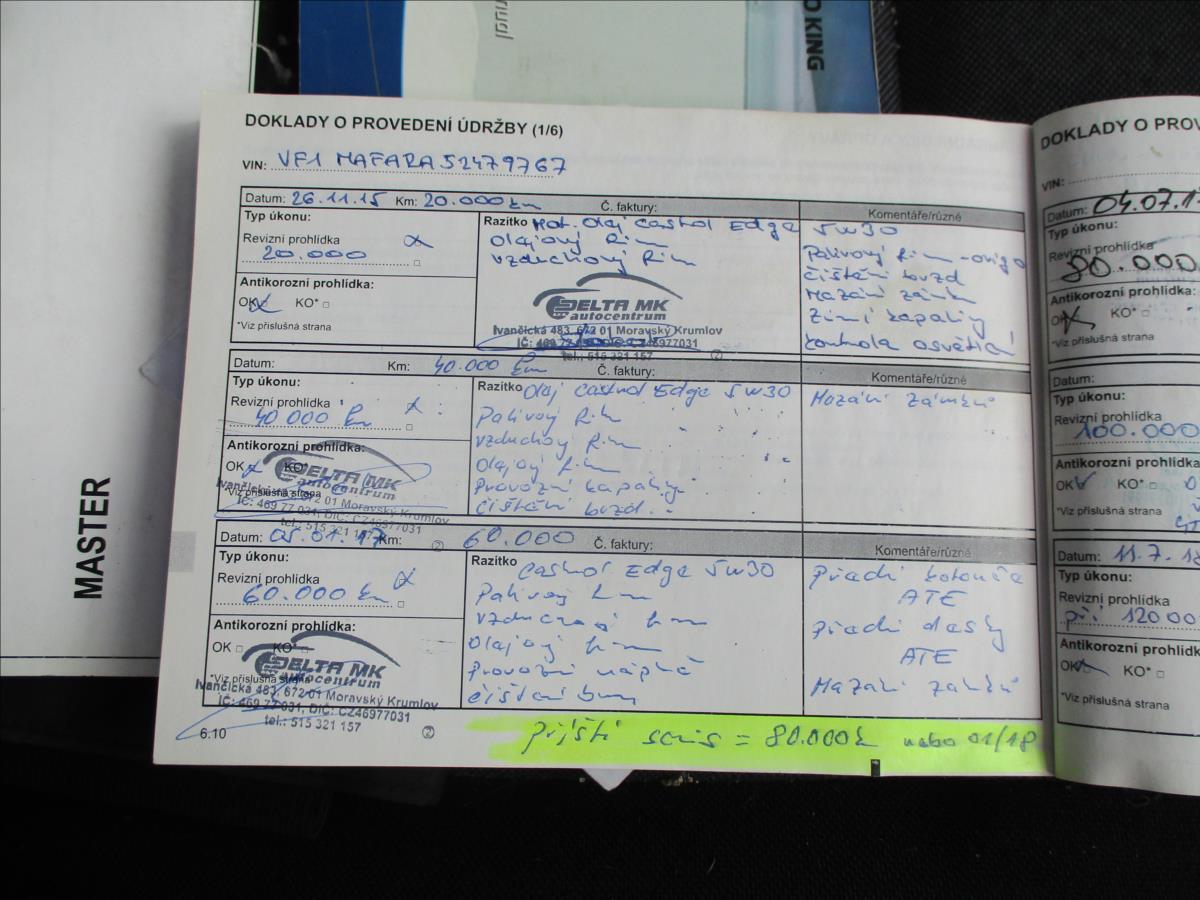 DOKLADY O PROVEDENÍ ÚDRŽBY (1/6)
VIN: VF1 MAFARA52479767
Datum: 26.11.15 Km: 20.000 km Č. faktury:
Komentáře/různé
Typ úkonu:
Revizní prohlídka
20.000
Antikorozní prohlídka:
OK KO*
*Viz příslušná strana
Razítko Mot. Olej Castrol Edge 5W30
Olejový
Vzduchový
DELTA MK
autocentrum
Ivančická 483, 672 01 Moravský Krumlov
IČ: 469 77 031, DIČ: CZ46977031
tel.: 515 321 157
Palivový
čištění brzd
Mazání zámků
Zimní kapaliny
kontrola osvětlení
Datum: Km: 40.000 km Č. faktury:
Komentáře/různé
Typ úkonu:
Revizní prohlídka
40 000 km
Antikorozní prohlídka:
OK KO*
*Viz příslušná strana
DELTA MK
autocentrum
Ivančická 483, 672 01 Moravský Krumlov
IČ: 469 77 031, DIČ: CZ46977031
tel.: 515 321 157
Razítko Olej Castrol Edge 5W30
Palivový
Vzduchový
Olejový
Provozní kapaliny
čištění brzd
Mazání zámků
Datum: 05.01.17 Km: 60.000 Č. faktury:
Komentáře/různé
Typ úkonu:
Revizní prohlídka
60.000 km
Antikorozní prohlídka:
OK KO*
*Viz příslušná strana
DELTA MK
autocentrum
Ivančická 483, 672 01 Moravský Krumlov
IČ: 469 77 031, DIČ: CZ46977031
tel.: 515 321 157
Razítko
Castrol Edge 5W30
Palivový
Vzduchový
Olejový
Provozní náplně
čištění
Přední kotouče
ATE
Přední desky
ATE
Mazání zámků
6.10
příští servis = 80.000 nebo 01/18
DOKLADY O PROV
VIN:
Datum: 04.07.1
Typ úkonu:
Revizní prohlídka
80.000
Antikorozní prohlídka
OK KO*
*Viz příslušná strana
Datum:
Typ úkonu:
Revizní prohlídka
100.000
Antikorozní prohlídka
OK KO*
*Viz příslušná strana
Datum: 11.7.18
Typ úkonu:
Revizní prohlídka
při 12000
Antikorozní prohlídka
OK KO*
*Viz příslušná strana
MASTER
O KING